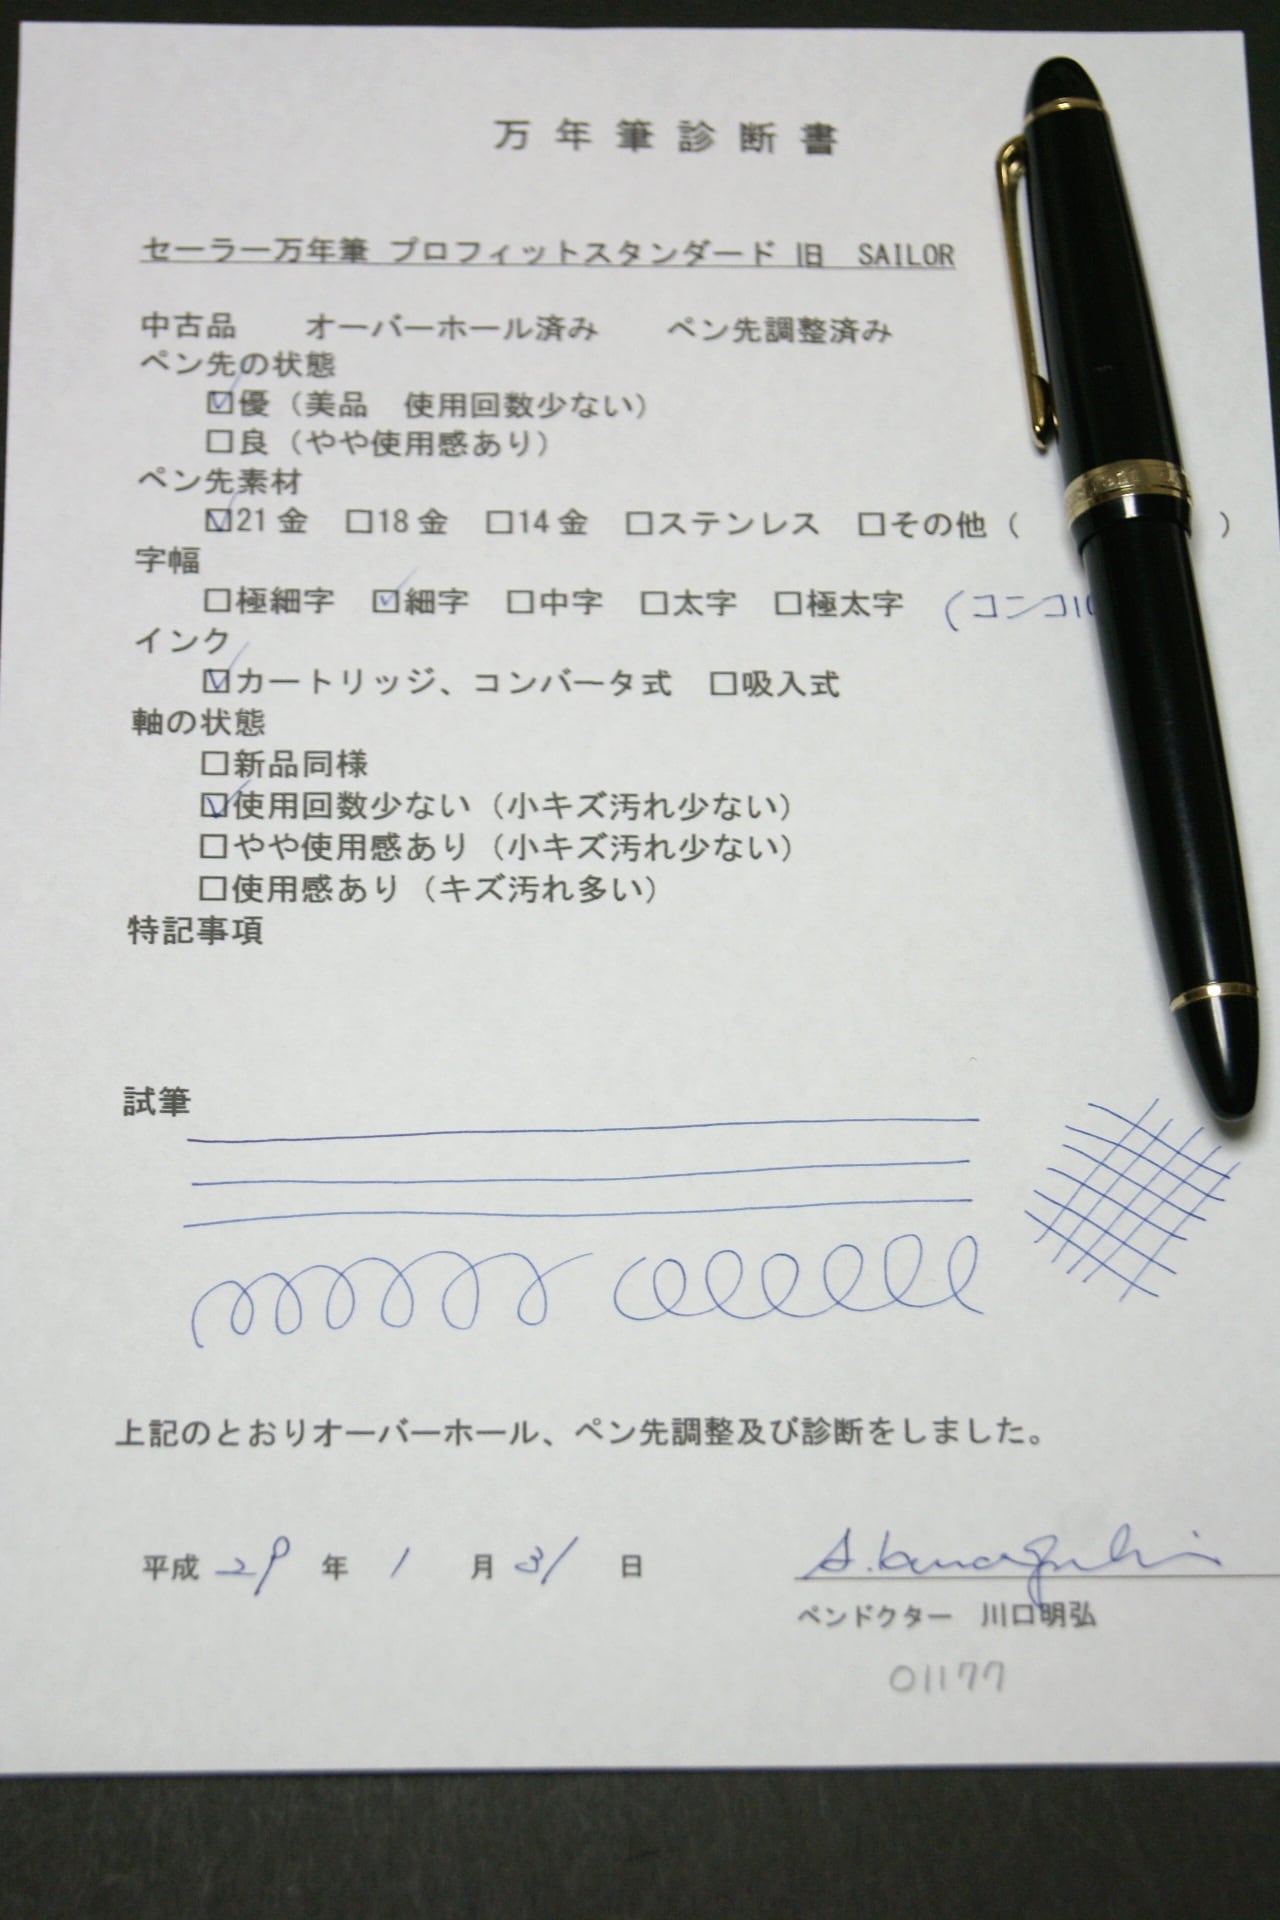 万年筆診断書
セーラー万年筆 プロフィットスタンダード 旧 SAILOR
中古品 オーバーホール済み ペン先調整済み
ペン先の状態
☑優（美品 使用回数少ない）
□良（やや使用感あり）
ペン先素材
☑21金 □18金 □14金 □ステンレス □その他（ ）
字幅
□極細字 ☑細字 □中字 □太字 □極太字 (コンコル
インク
☑カートリッジ、コンバータ式 □吸入式
軸の状態
□新品同様
☑使用回数少ない（小キズ汚れ少ない）
□やや使用感あり（小キズ汚れ少ない）
□使用感あり（キズ汚れ多い）
特記事項
試筆
上記のとおりオーバーホール、ペン先調整及び診断をしました。
平成 29 年 1 月 31 日
ペンドクター 川口明弘
01177